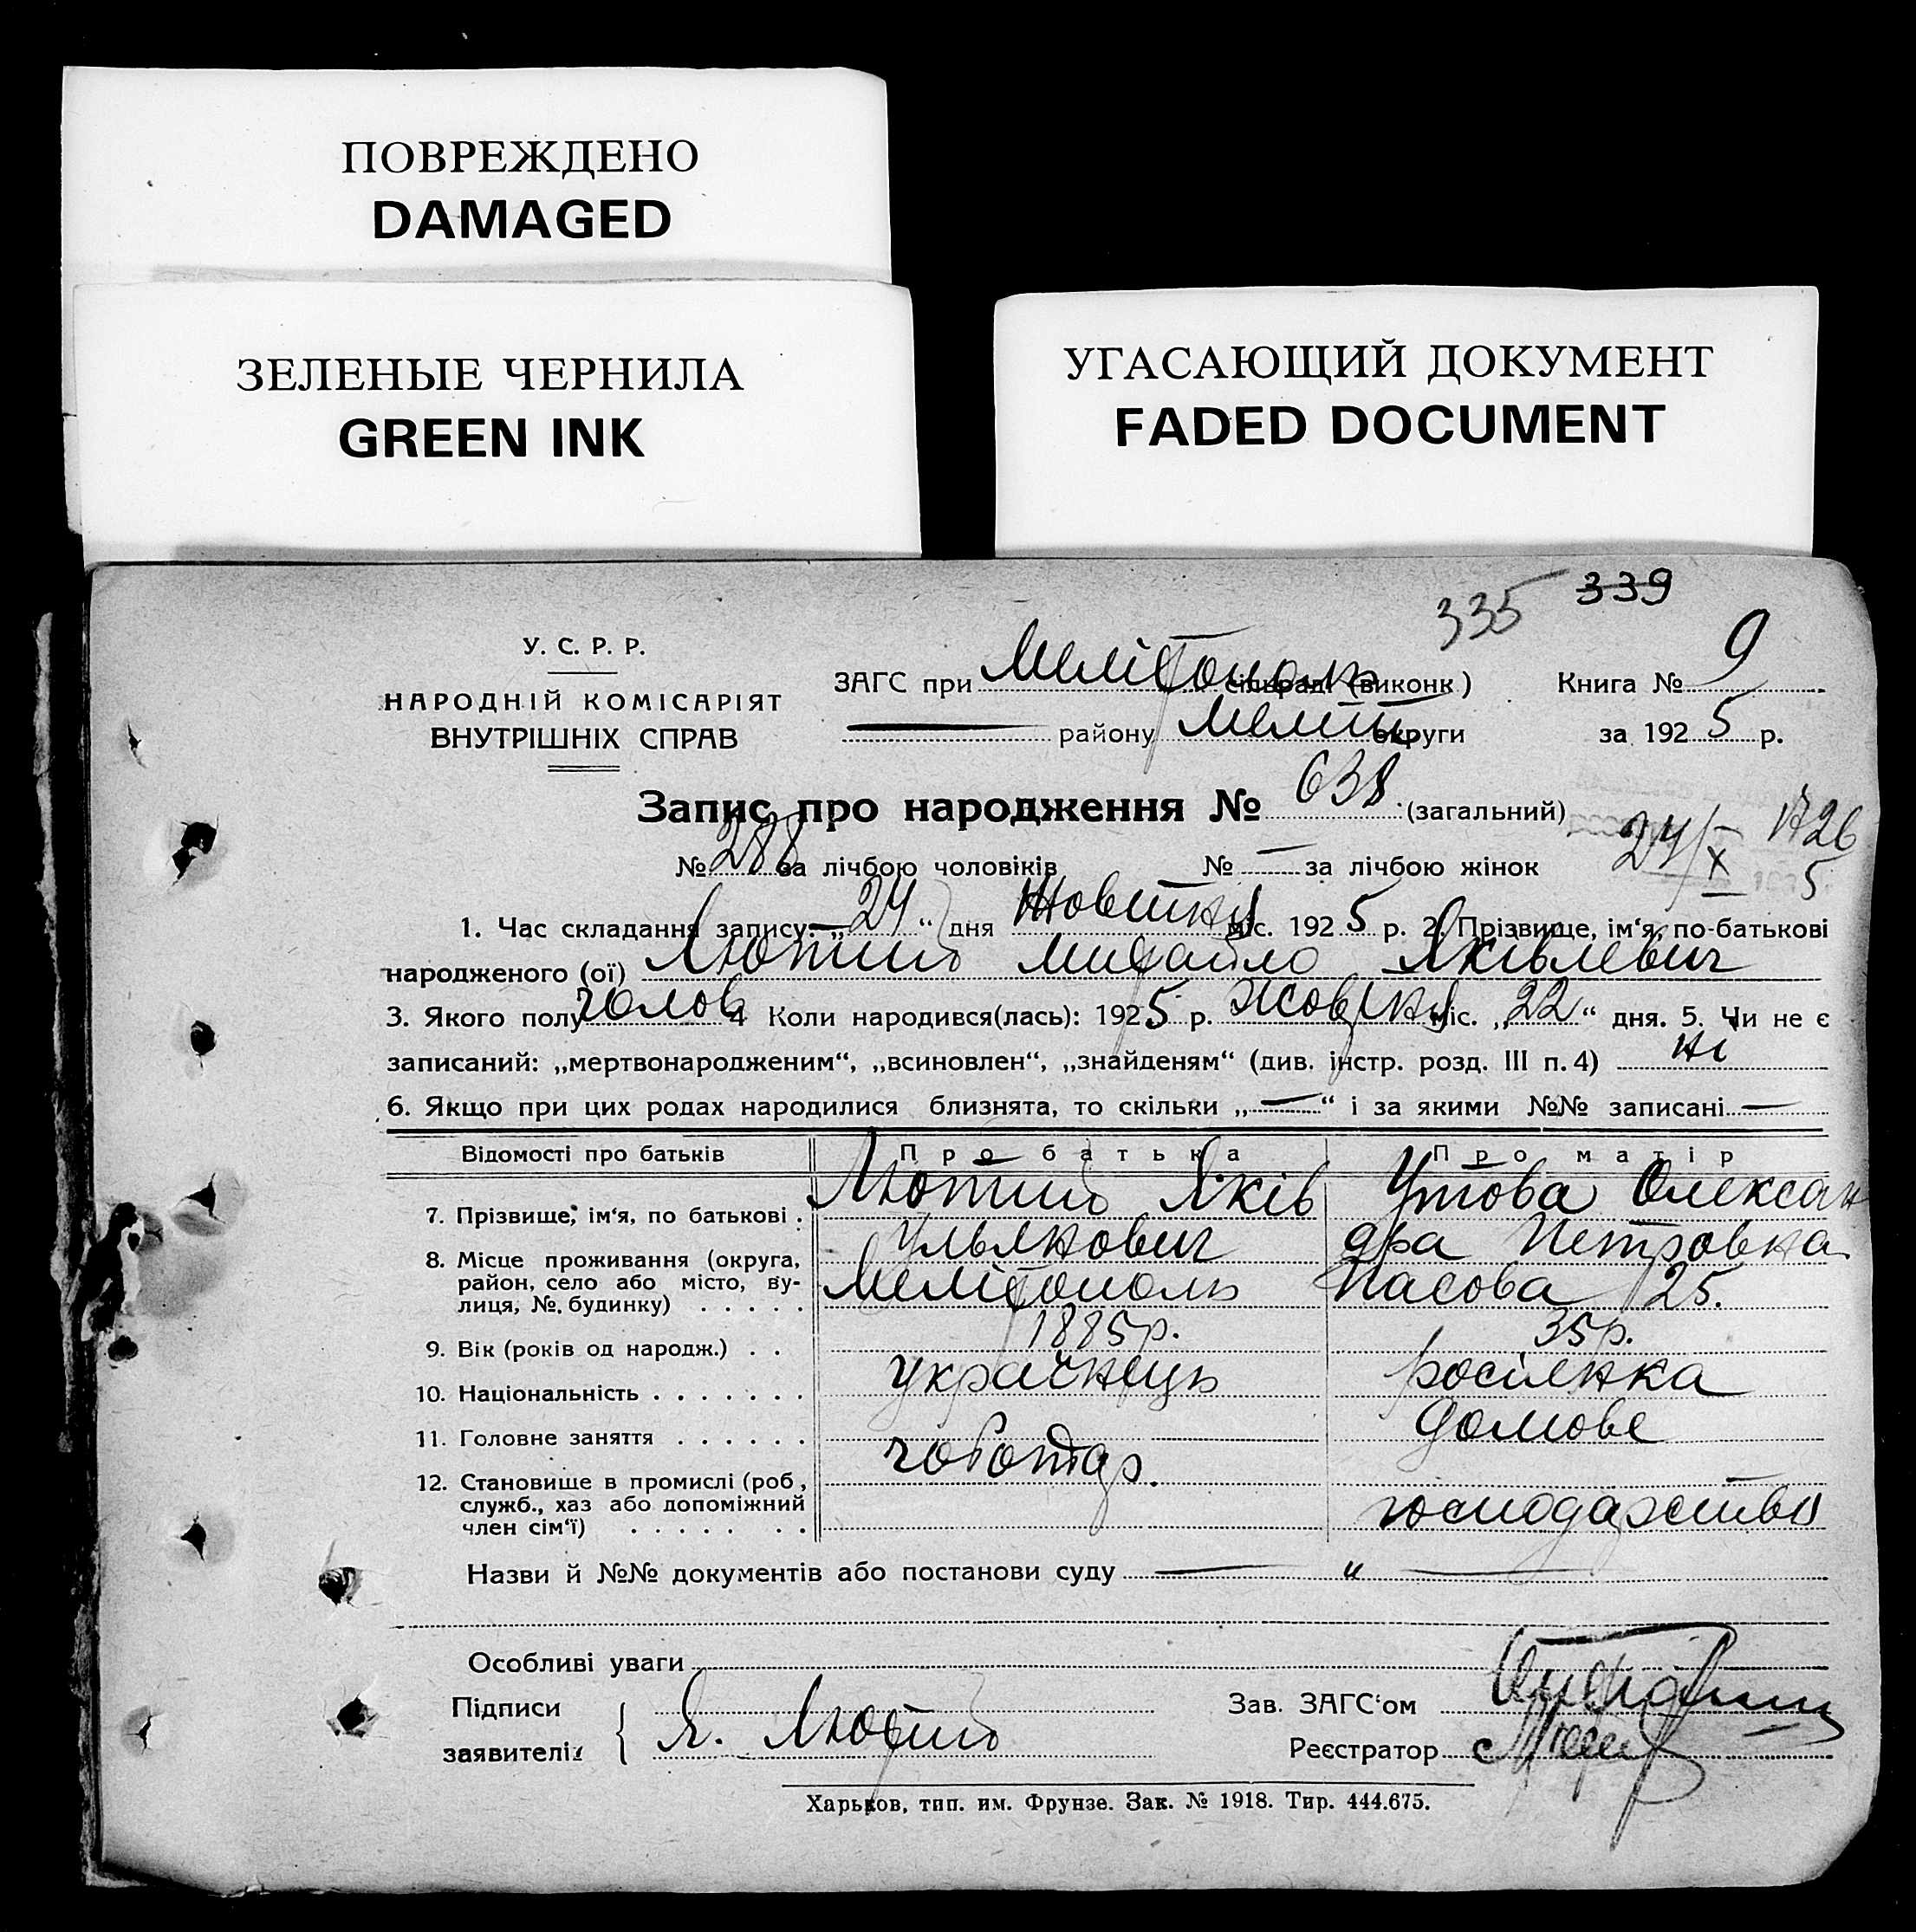 ПОВРЕЖДЕНО
DAMAGED
ЗЕЛЕНЫЕ ЧЕРНИЛА
GREEN INK
УГАСАЮЩИЙ ДОКУМЕНТ
FADED DOCUMENT
335 339
У. С. Р. Р.
НАРОДНІЙ КОМІСАРІЯТ
ВНУТРІШНІХ СПРАВ
ЗАГС при Мелітополь сільраді (виконк) Книга № 9
— району Меліт округи за 1925 р.
Запис про народження № 638 (загальний)
24/X 1726
5
№ 288 за лічбою чоловіків № — за лічбою жінок
1. Час складання запису: „24“ дня Жовтня міс. 1925 р. 2. Прізвище, ім‘я, по-батькові
народженого (ої) Лютий Михайло Яківлевич
3. Якого полу чолов 4 Коли народився(лась): 1925 р. Жовтня міс. „22“ дня. 5. Чи не є
записаний: „мертвонародженим“, „всиновлен“, „знайденям“ (див. інстр. розд. III п. 4) ні
6. Якщо при цих родах народилися близнята, то скільки „—“ і за якими №№ записані —
Відомості про батьків Про батька Про матір
7. Прізвище, ім‘я, по батькові . Лютий Яків Ульянович Утова Олександра Петровна
8. Місце проживання (округа,
район, село або місто, ву-
лиця, №. будинку) . . . . . Мелітополь Пасова 25.
9. Вік (років од народж.) . . 1885р. 35р.
10. Національність . . . . . . . українець росіянка
11. Головне заняття . . . . . . чоботар. домове
12. Становище в промислі (роб.,
служб., хаз або допоміжний
член сім‘ї) . . . . . . . господарство
Назви й №№ документів або постанови суду — „ —
Особливі уваги
Підписи
заявителів { Я. Лютий
Зав. ЗАГС‘ом
Реєстратор
Харьков, тип. им. Фрунзе. Зак. № 1918. Тир. 444.675.